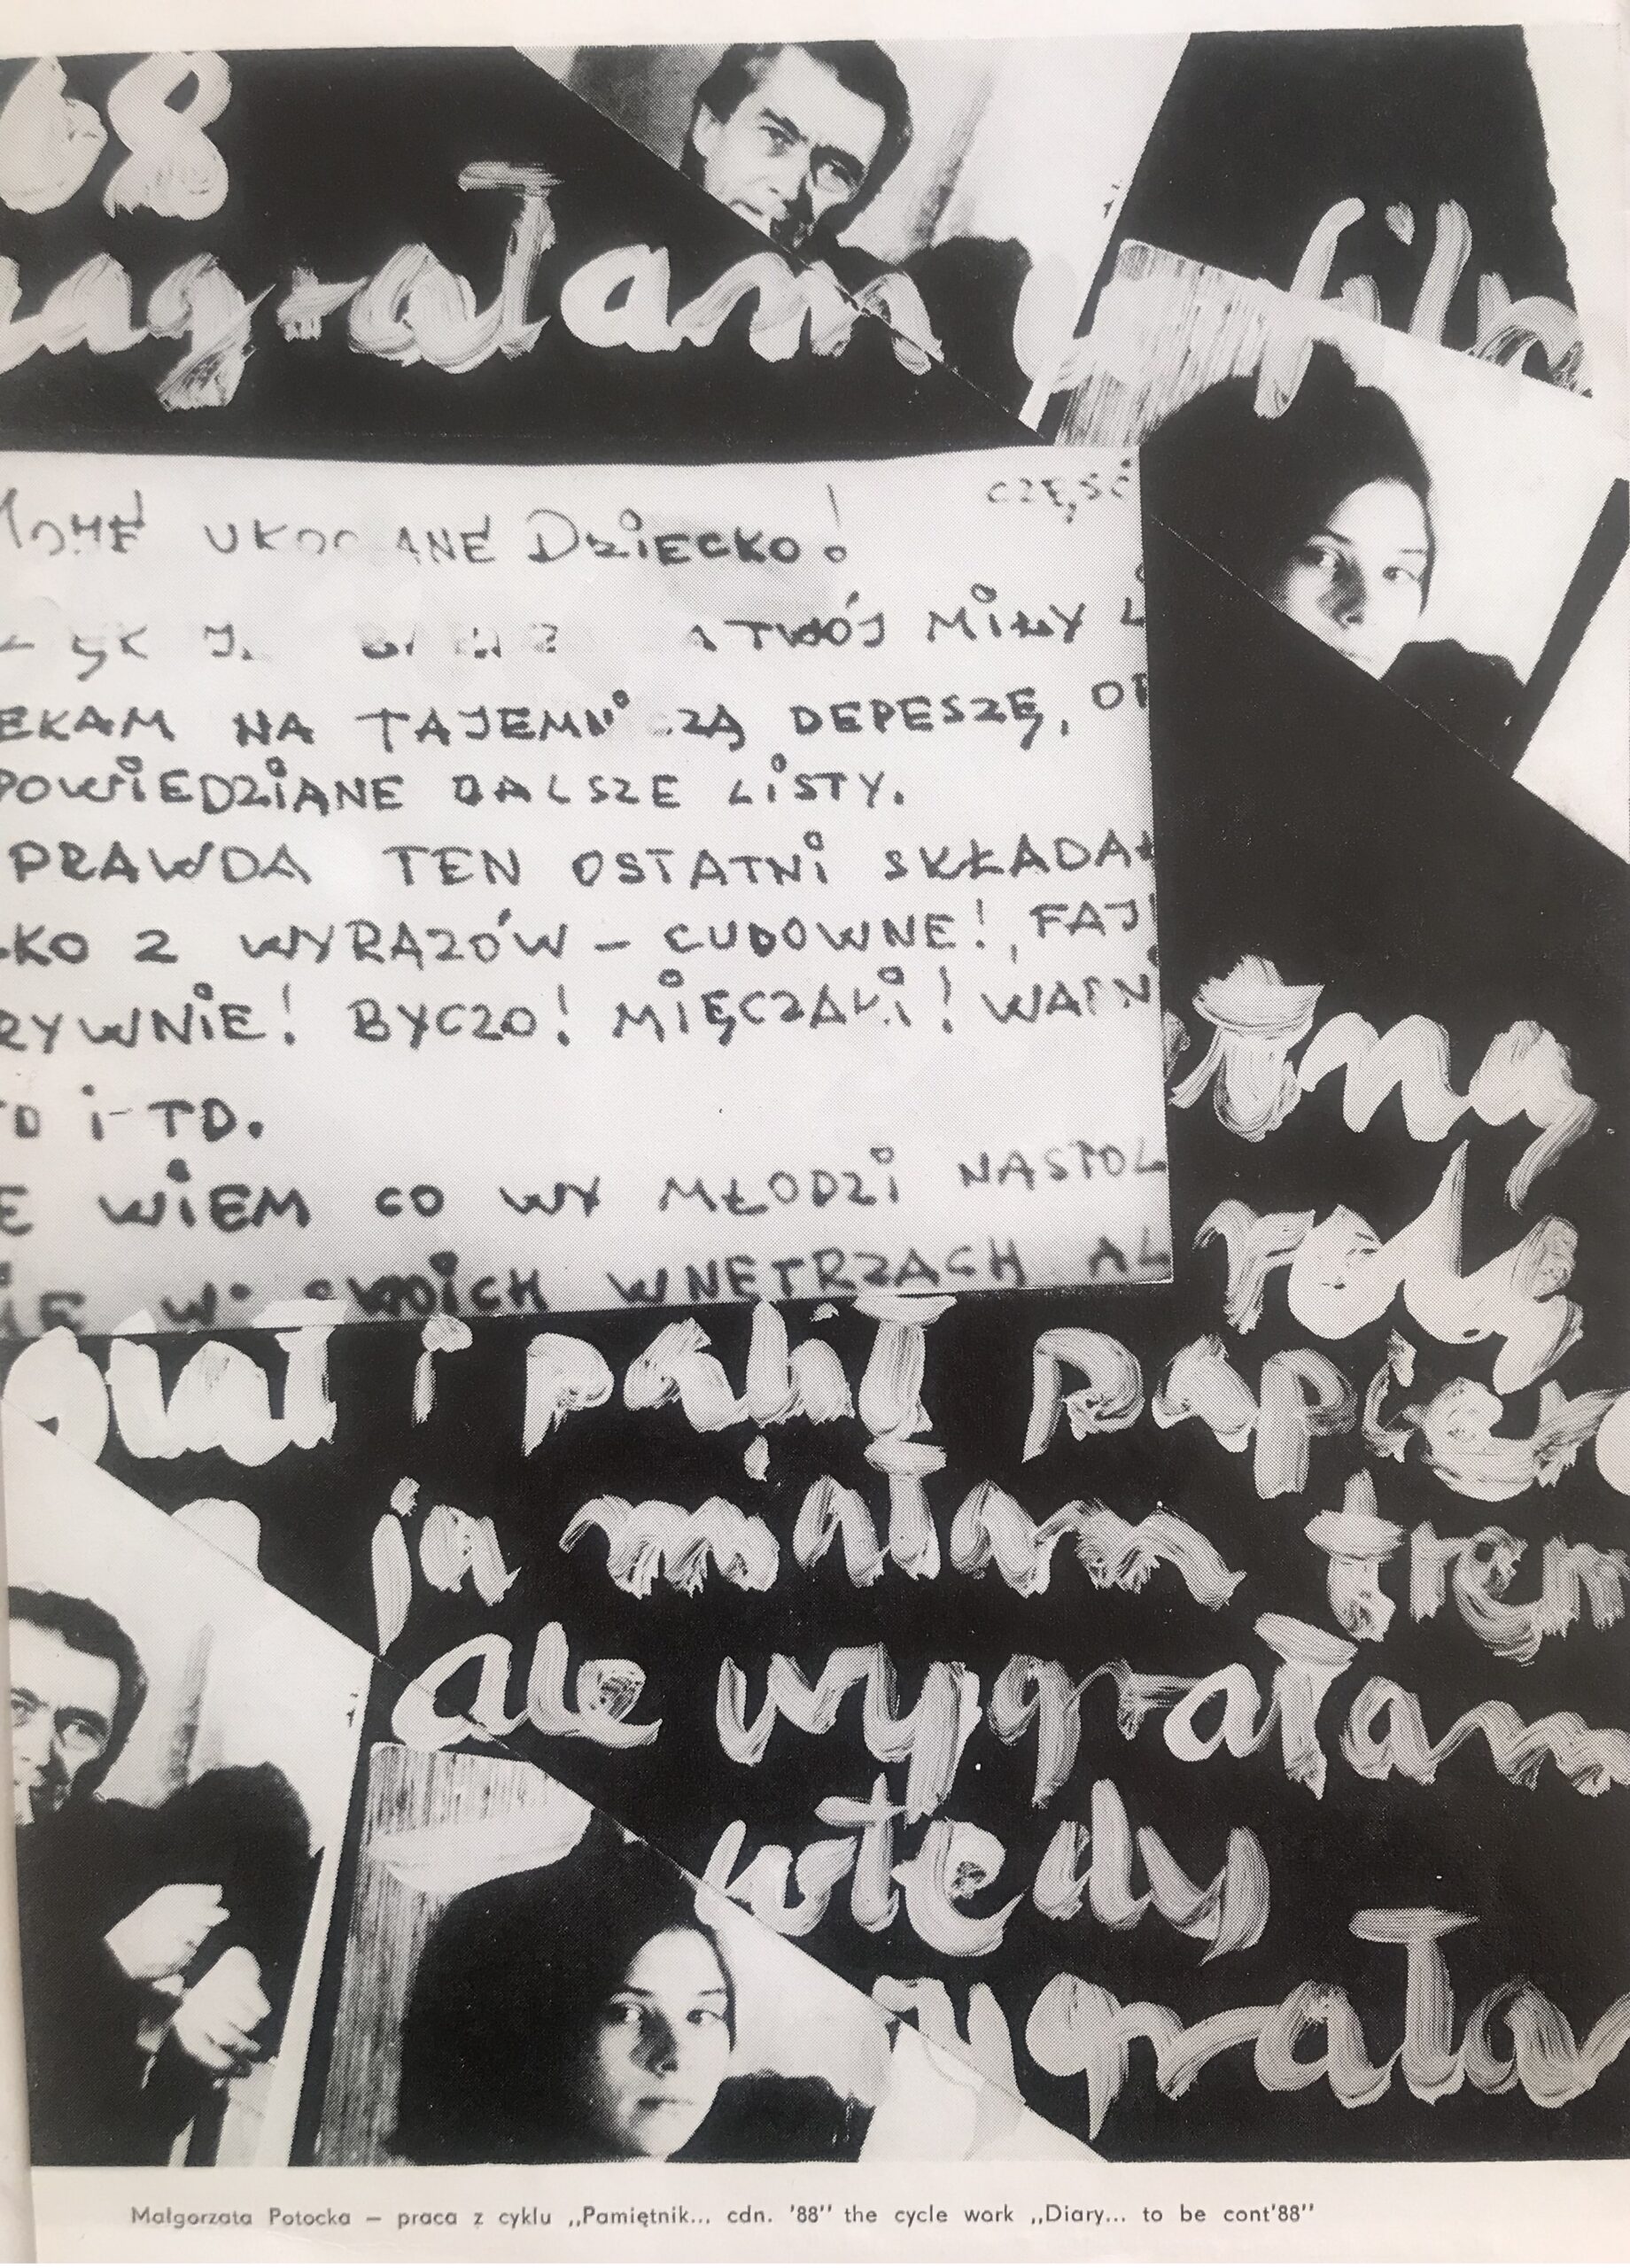 68
nagrałam w film
CZĘŚĆ
MOJE UKOCHANE DZIECKO!
TWÓJ MIŁY L
EKAM NA TAJEMNICZĄ DEPESZĘ, OR
POWIEDZIANE DALSZE LISTY.
PRAWDA TEN OSTATNI SKŁADAŁ
KO Z WYRAZÓW – CUDOWNE!, FAJ
RYWNIE! BYCZO! MIĘCZAKI! WAŻN
TD i TD.
E WIEM CO WY MŁODZI NASTOL
IE W SWOICH WNĘTRZACH AL
tmą
rolę
grał i palił papiero
ja miałam trem
ale wygrałam
wtedy
wygrałam
Małgorzata Potocka – praca z cyklu „Pamiętnik... cdn. '88" the cycle work „Diary... to be cont'88"